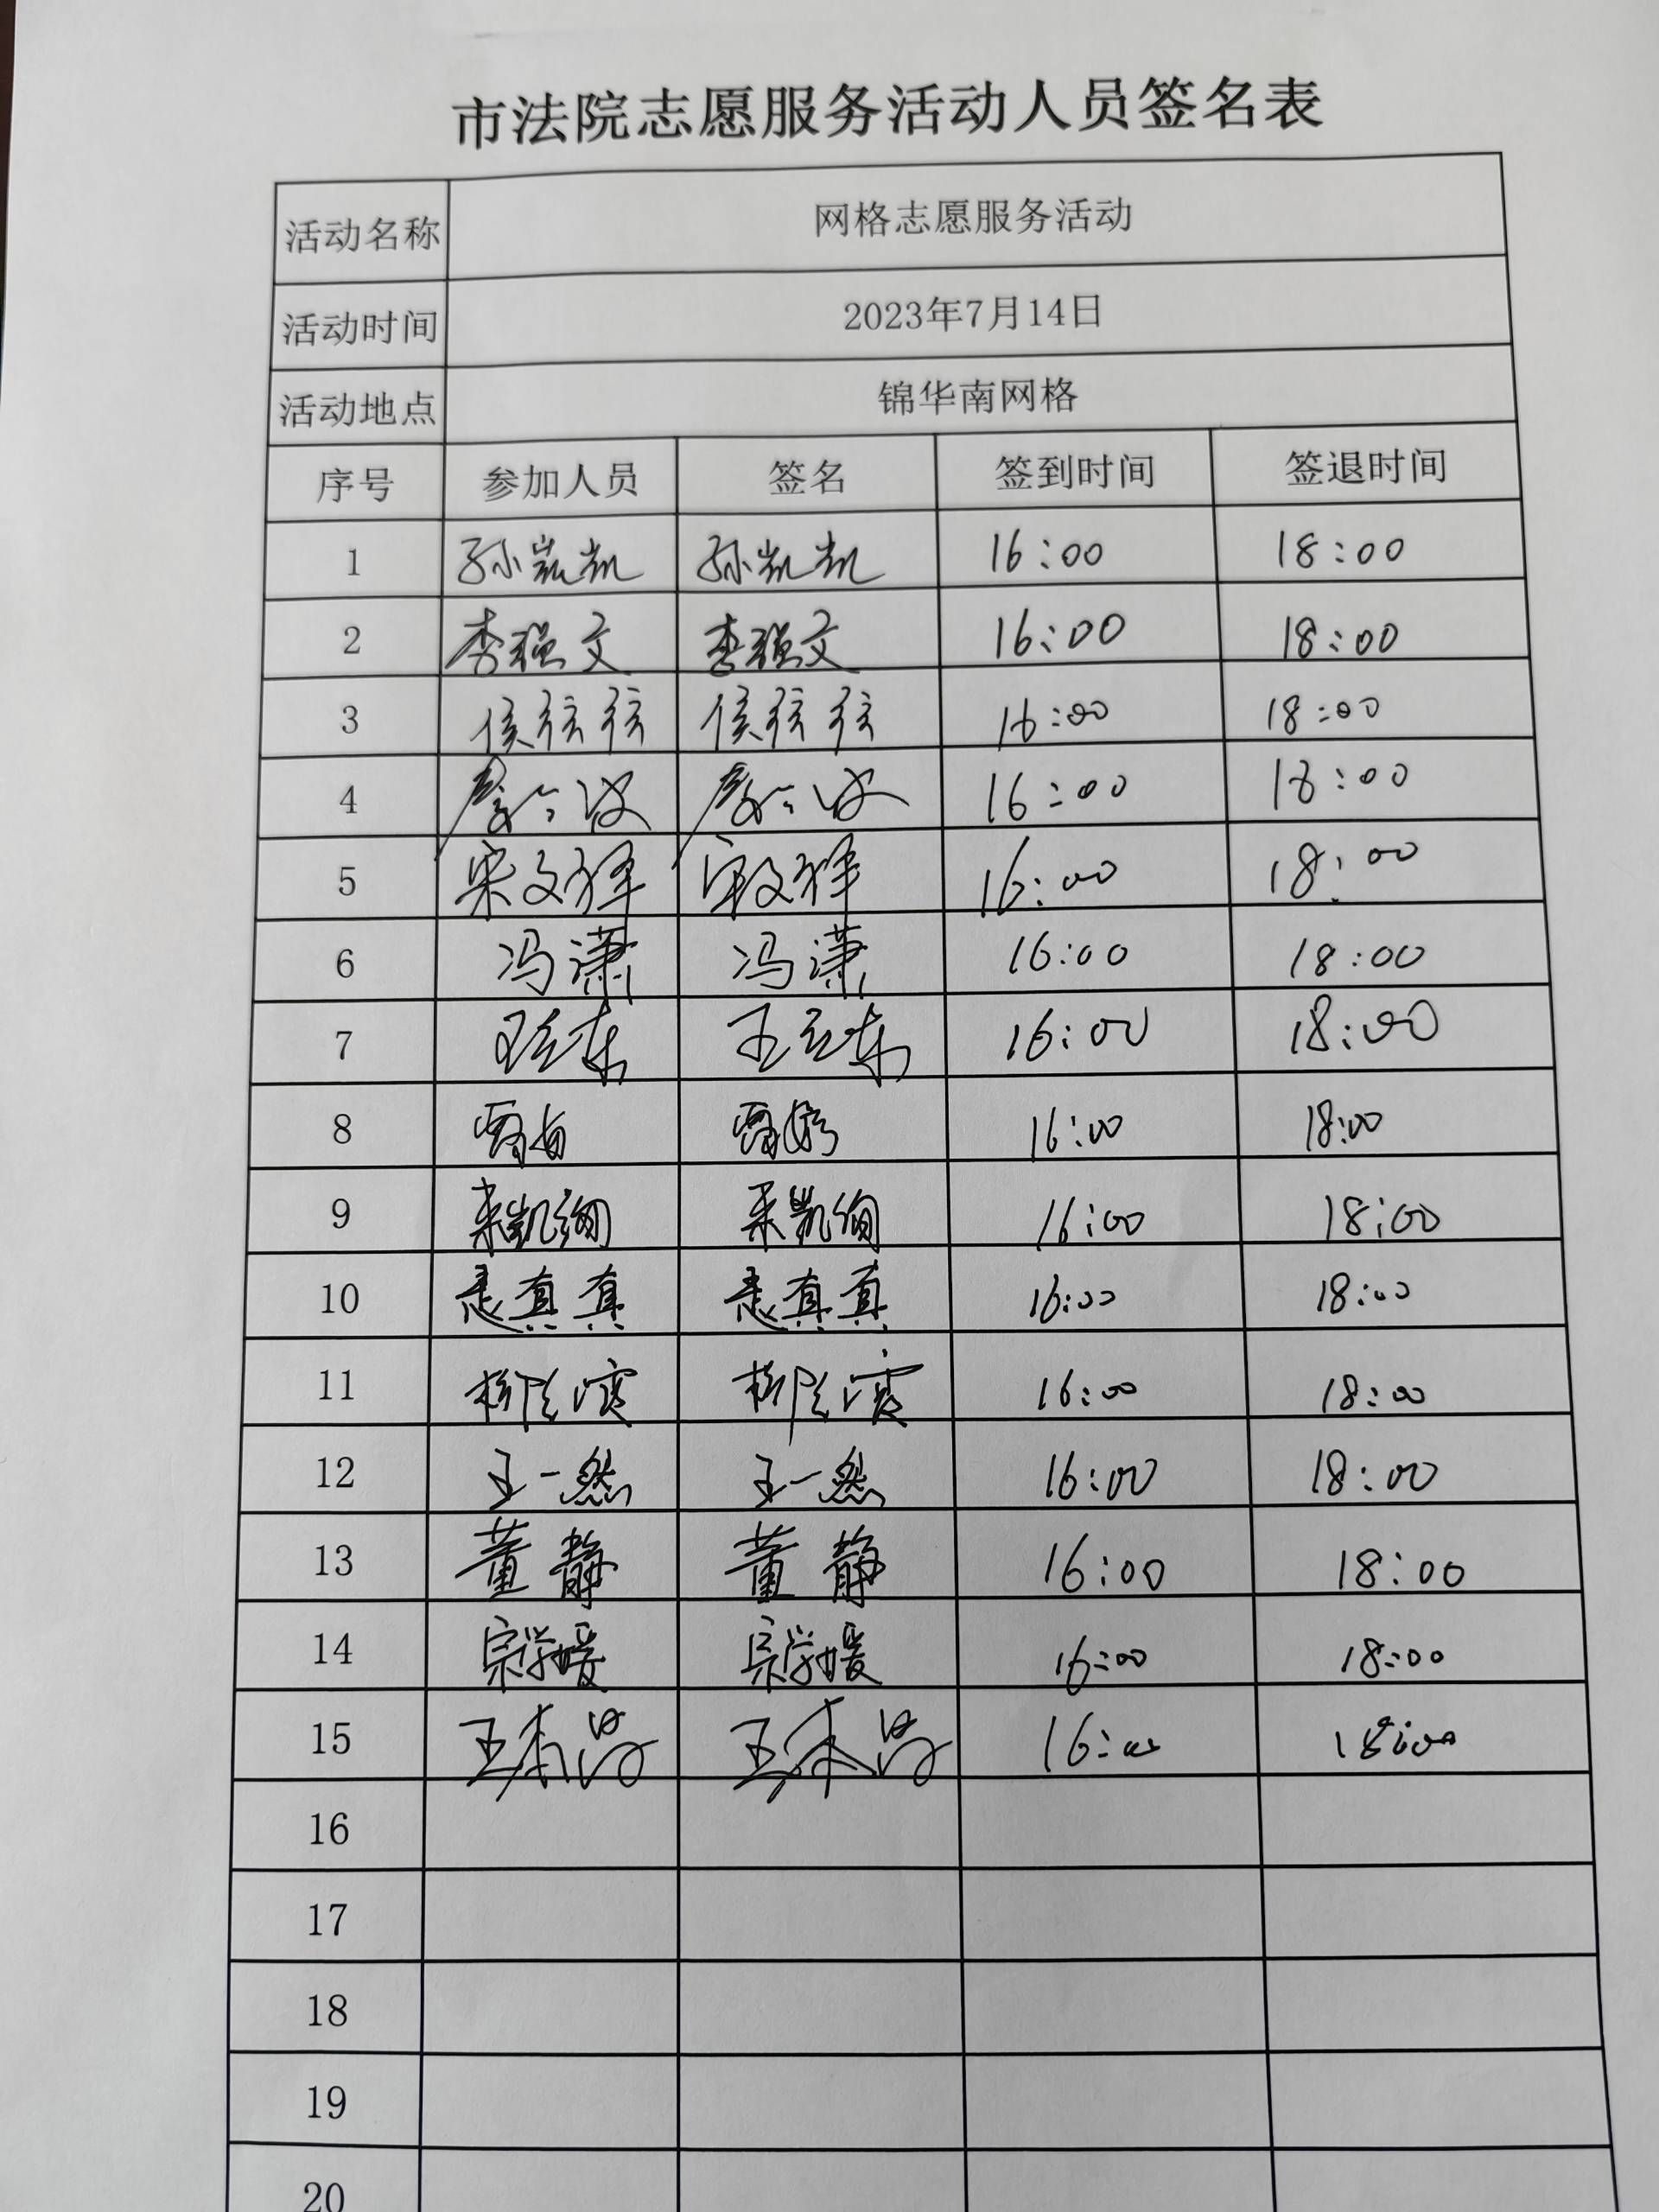 市法院志愿服务活动人员签名表
活动名称 网格志愿服务活动
活动时间 2023年7月14日
活动地点 锦华南网格
序号 参加人员 签名 签到时间 签退时间
1 孙凯凯 孙凯凯 16:00 18:00
2 李强文 李强文 16:00 18:00
3 侯弦弦 侯弦弦 16:00 18:00
4 16:00 18:00
5 宋文祥 宋文祥 16:00 18:00
6 冯潇 冯潇 16:00 18:00
7 王立东 王立东 16:00 18:00
8 16:00 18:00
9 来凯绚 来凯绚 16:00 18:00
10 真真 真真 16:00 18:00
11 16:00 18:00
12 王一然 王一然 16:00 18:00
13 董静 董静 16:00 18:00
14 宗学媛 宗学媛 16:00 18:00
15 王 王 16:00 18:00
16
17
18
19
20